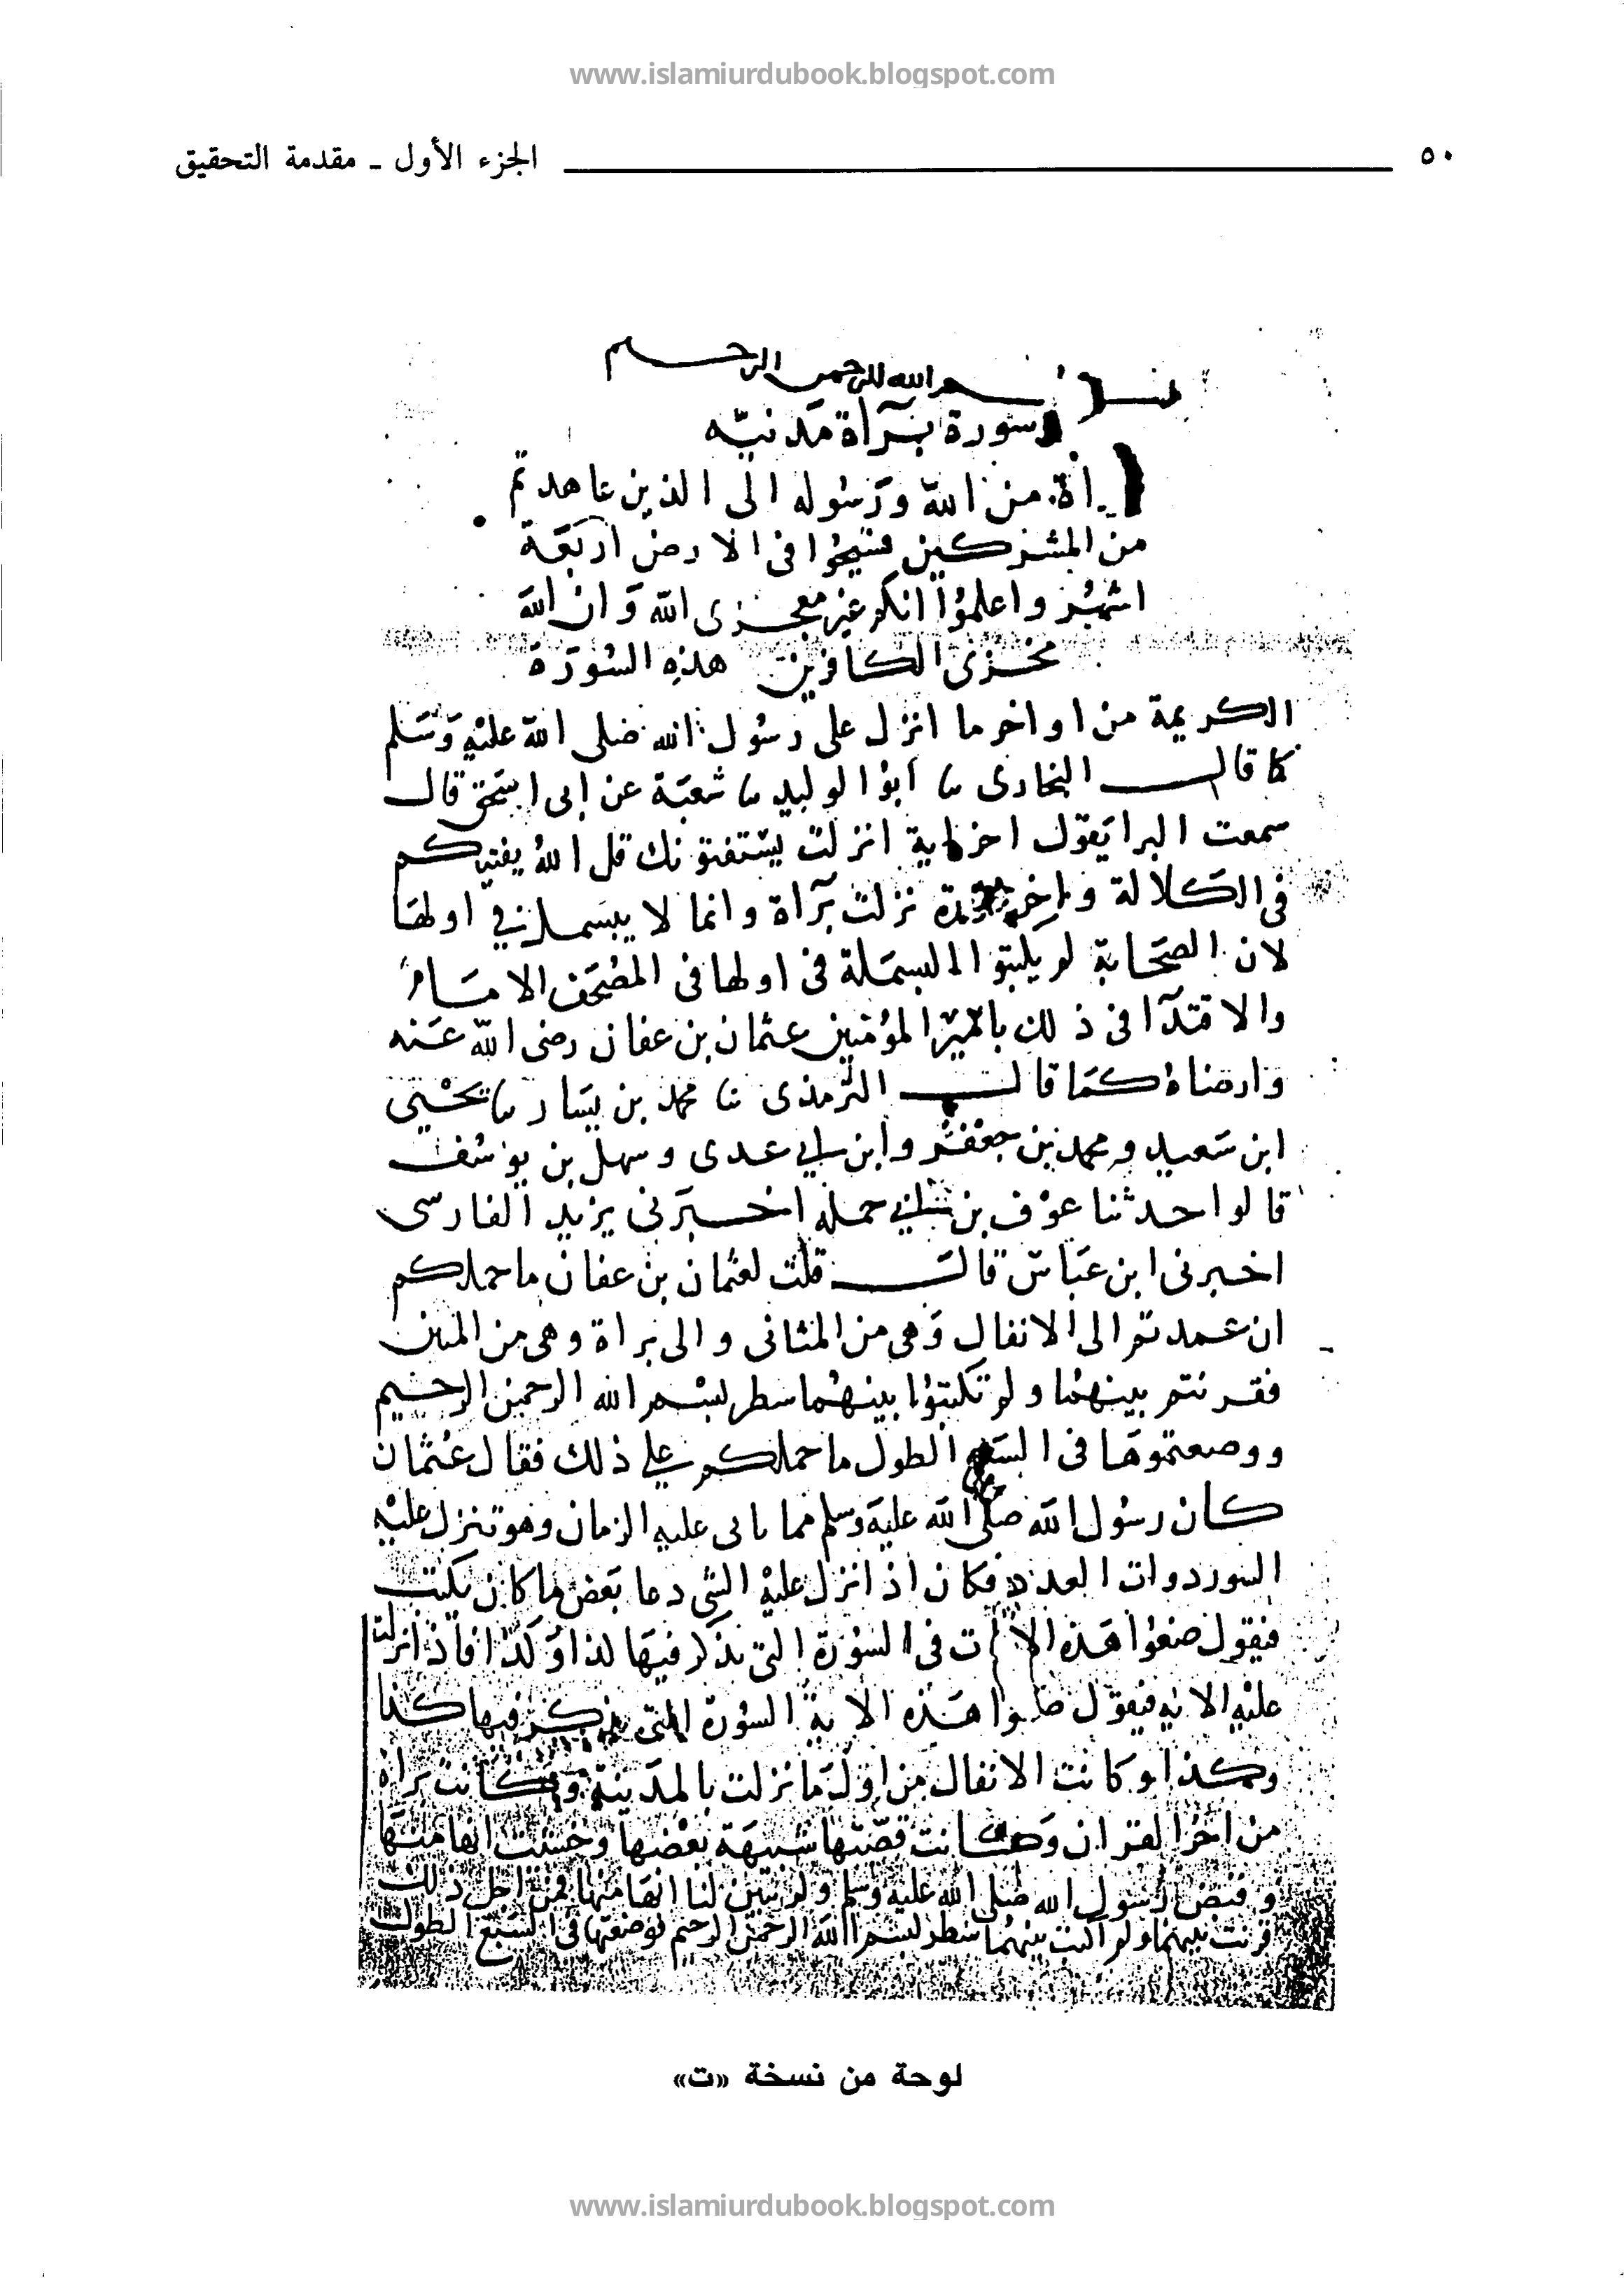 www.islamiurdubook.blogspot.com
٥٠ الجزء الأول ـ مقدمة التحقيق
بسم الله الرحمن الرحيم
سورة برآة مدنيه
براة من الله ورسوله الى الذين عاهدتم
من المشركين فسيحوا فى الارض اربعة
اشهر واعلموا انكم غير معجزى الله وان الله
مخزى الكافرين هذه السورة
الكريمة من اواخر ما انزل على رسول الله صلى الله عليه وسلم
كما قال البخارى ثنا ابو الوليد ثنا شعبة عن ابى اسحق قال
سمعت البرا يقول اخر اية انزلت يستفتونك قل الله يفتيكم
فى الكلالة واخر سورة نزلت برآة وانما لا يبسمل فى اولها
لان الصحابة لم يكتبوا البسملة فى اولها فى المصحف الامام
والاقتدآ فى ذلك بامير المؤمنين عثمان بن عفان رضى الله عنه
وارضاه كما قال الترمذى ثنا محمد بن بشار ثنا يحيى
ابن سعيد ومحمد بن جعفر وابن ابي عدى وسهل بن يوسف
قالوا حدثنا عوف بن ابي جميلة اخبرنى يزيد الفارسى
اخبرنى ابن عباس قال قلت لعثمان بن عفان ما حملكم
ان عمدتم الى الانفال وهى من المثانى والى براة وهى من المئين
فقرنتم بينهما ولم تكتبوا بينهما سطر بسم الله الرحمن الرحيم
ووضعتموها فى السبع الطول ما حملكم علي ذلك فقال عثمان
كان رسول الله صلى الله عليه وسلم مما ياتى عليه الزمان وهو تنزل عليه
السور ذوات العدد فكان اذا نزل عليه الشى دعا بعض من كان يكتب
فيقول ضعوا هذه الايات فى السورة التى يذكر فيها كذا وكذا فاذا نزلت
عليه الاية فيقول ضعوا هذه الاية السورة التى يذكر فيها كذا
وكذا وكانت الانفال من اول ما نزلت بالمدينة وكانت براة
من اخر القران وكانت قصتها شبيهة بعضها وحسبت انها منها
وقبض رسول الله صلى الله عليه وسلم ولم يبين لنا انها منها فمن اجل ذلك
قرنت بينهما ولم اكتب بينهما سطر بسم الله الرحمن الرحيم ووضعتها فى السبع الطول
لوحة من نسخة «ت»
www.islamiurdubook.blogspot.com